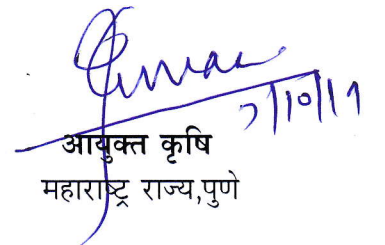 7/10/19
आयुक्त कृषि
महाराष्ट्र राज्य,पुणे